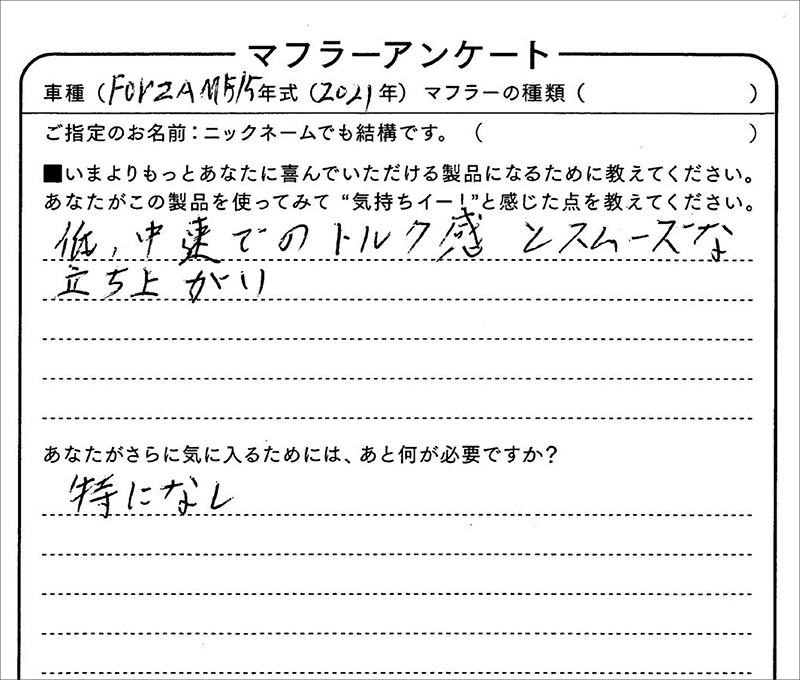 マフラーアンケート
車種(FORZA MF15年式(2021年) マフラーの種類( )
ご指定のお名前:ニックネームでも結構です。 ( )
■いまよりもっとあなたに喜んでいただける製品になるために教えてください。
あなたがこの製品を使ってみて“気持ちイー!”と感じた点を教えてください。
低,中速でのトルク感とスムーズな
立ち上がり
あなたがさらに気に入るためには、あと何が必要ですか?
特になし